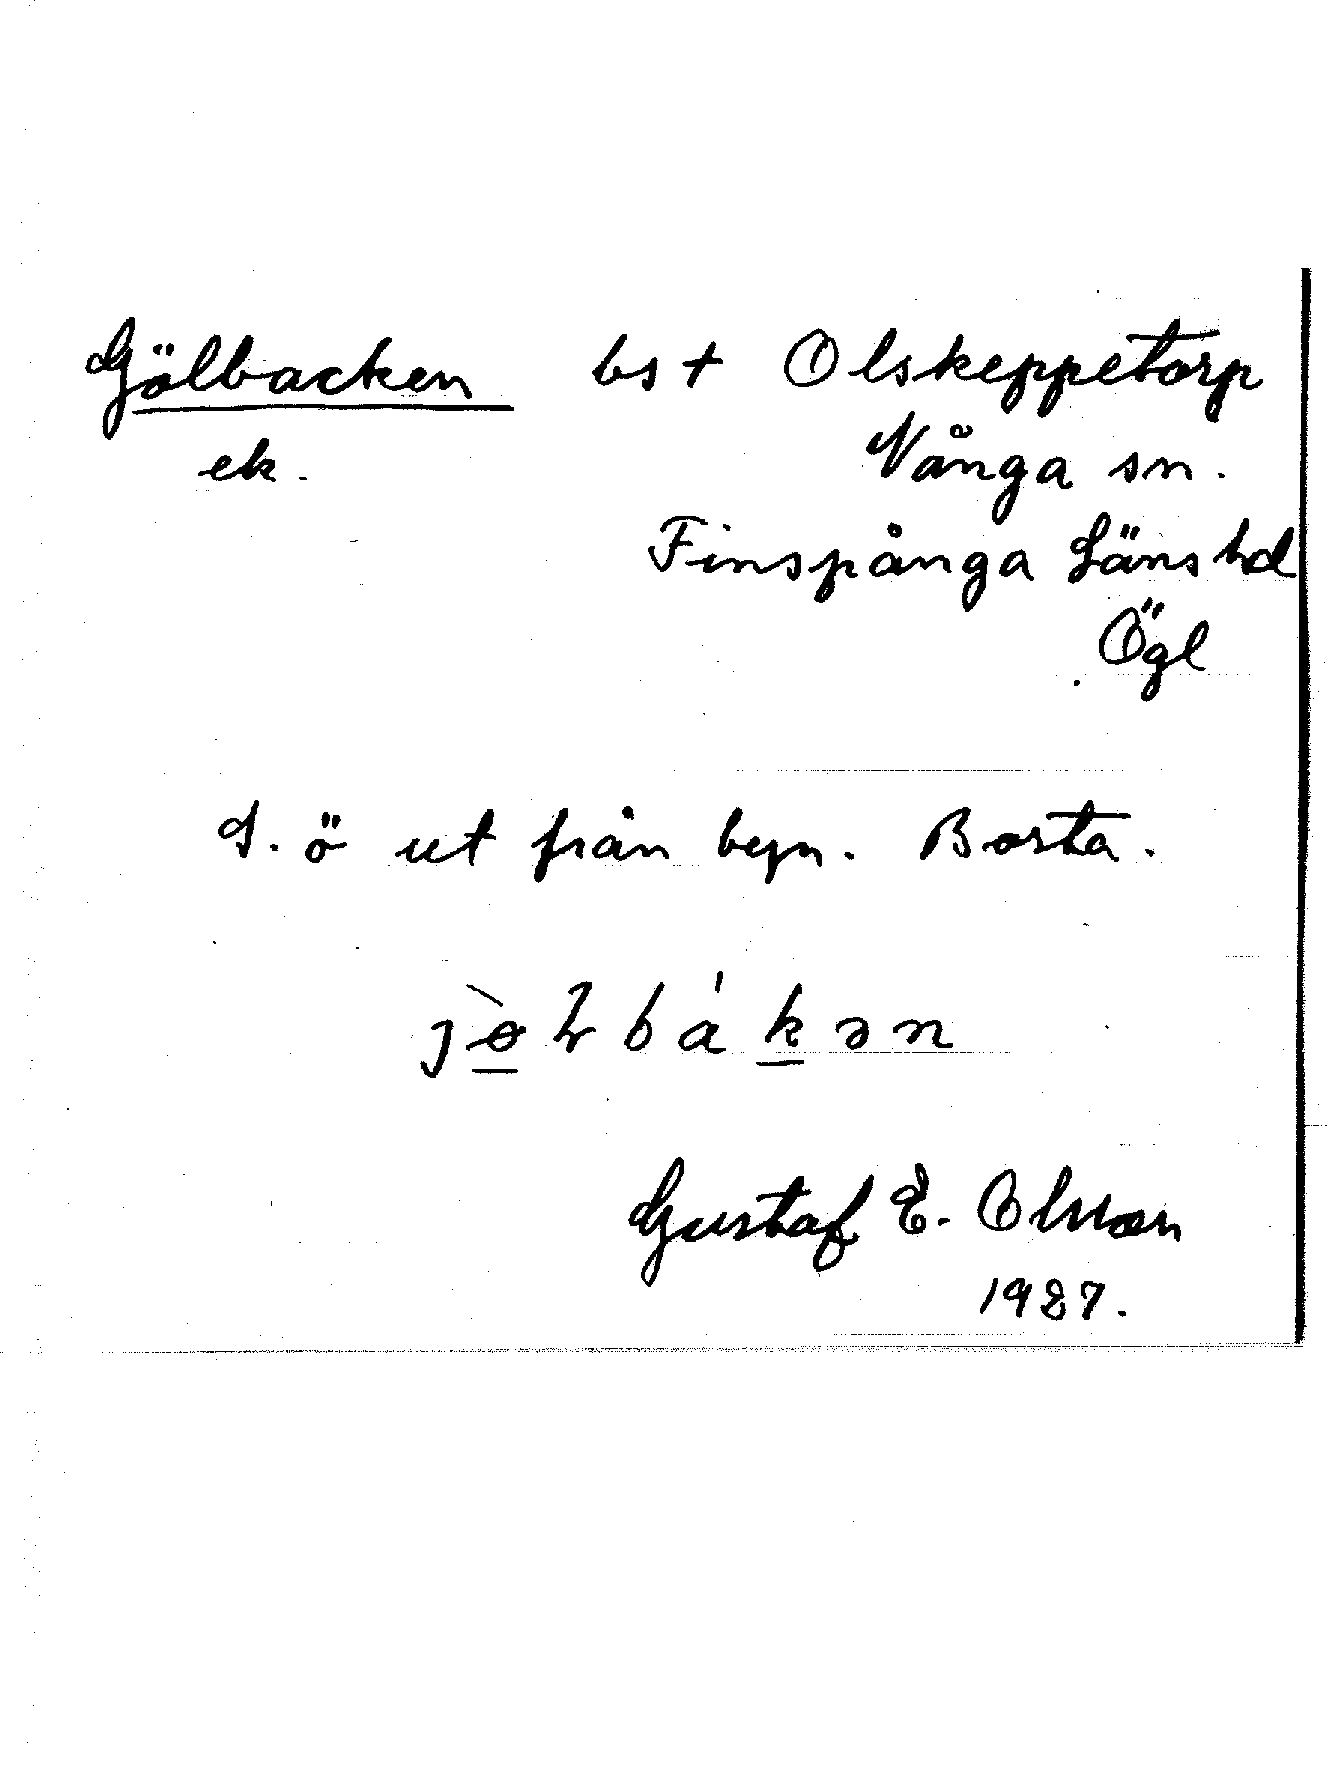 Gölbacken bs † Olskeppetorp
ek. Vånga sn.
Finspånga Läns hd
Ögl
S. ö ut från byn. Borta.
Gustaf E. Olsson
1927.